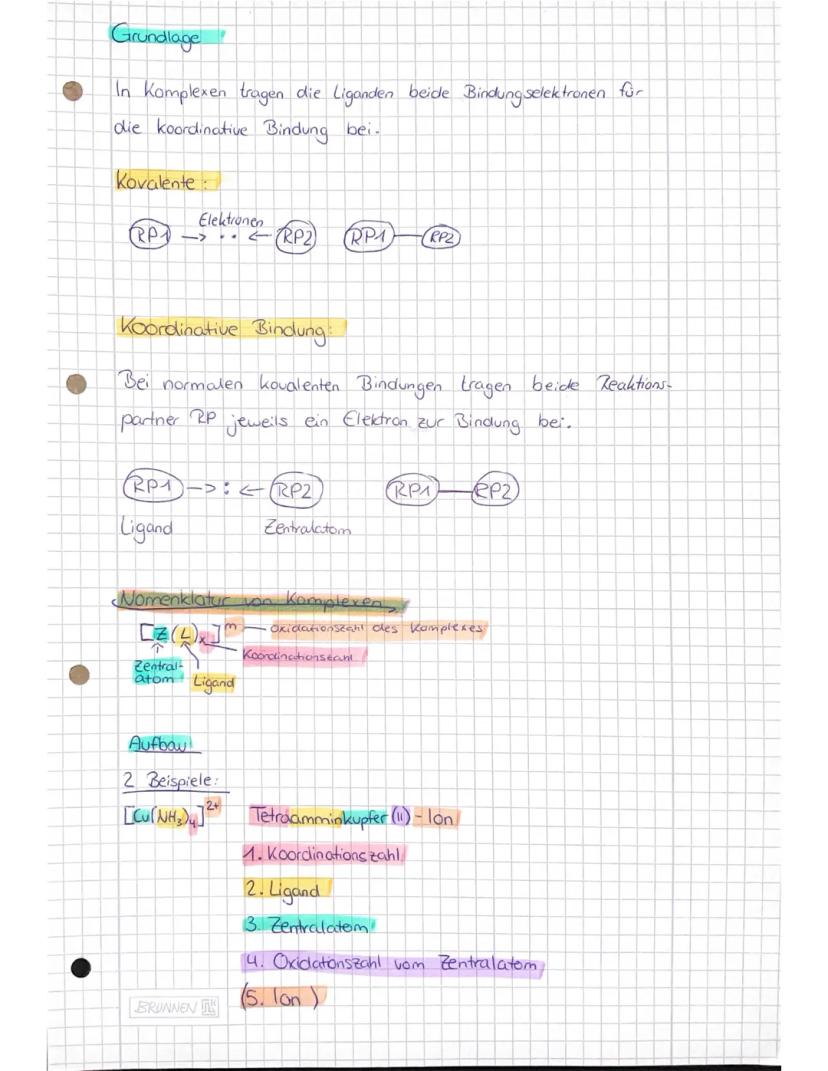 Grundlage
In Komplexen tragen die Liganden beide Bindungselektronen für
die koordinative Bindung bei.
Kovalente:
RP1 -> Elektronen .. <- RP2 RP1 — RP2
Koordinative Bindung:
Bei normalen kovalenten Bindungen tragen beide Reaktions-
partner RP jeweils ein Elektron zur Bindung bei.
RP1 -> : <- RP2 RP1 — RP2
Ligand Zentralatom
Nomenklatur von Komplexen
[Z(L)x]m — Oxidationszahl des Komplexes
Koordinationszahl
Zentral-
atom Ligand
Aufbau
2 Beispiele:
[Cu(NH3)4]2+ Tetraamminkupfer(II)-Ion
1. Koordinationszahl
2. Ligand
3. Zentralatom
4. Oxidatonszahl vom Zentralatom
(5. Ion)
BRUNNEN